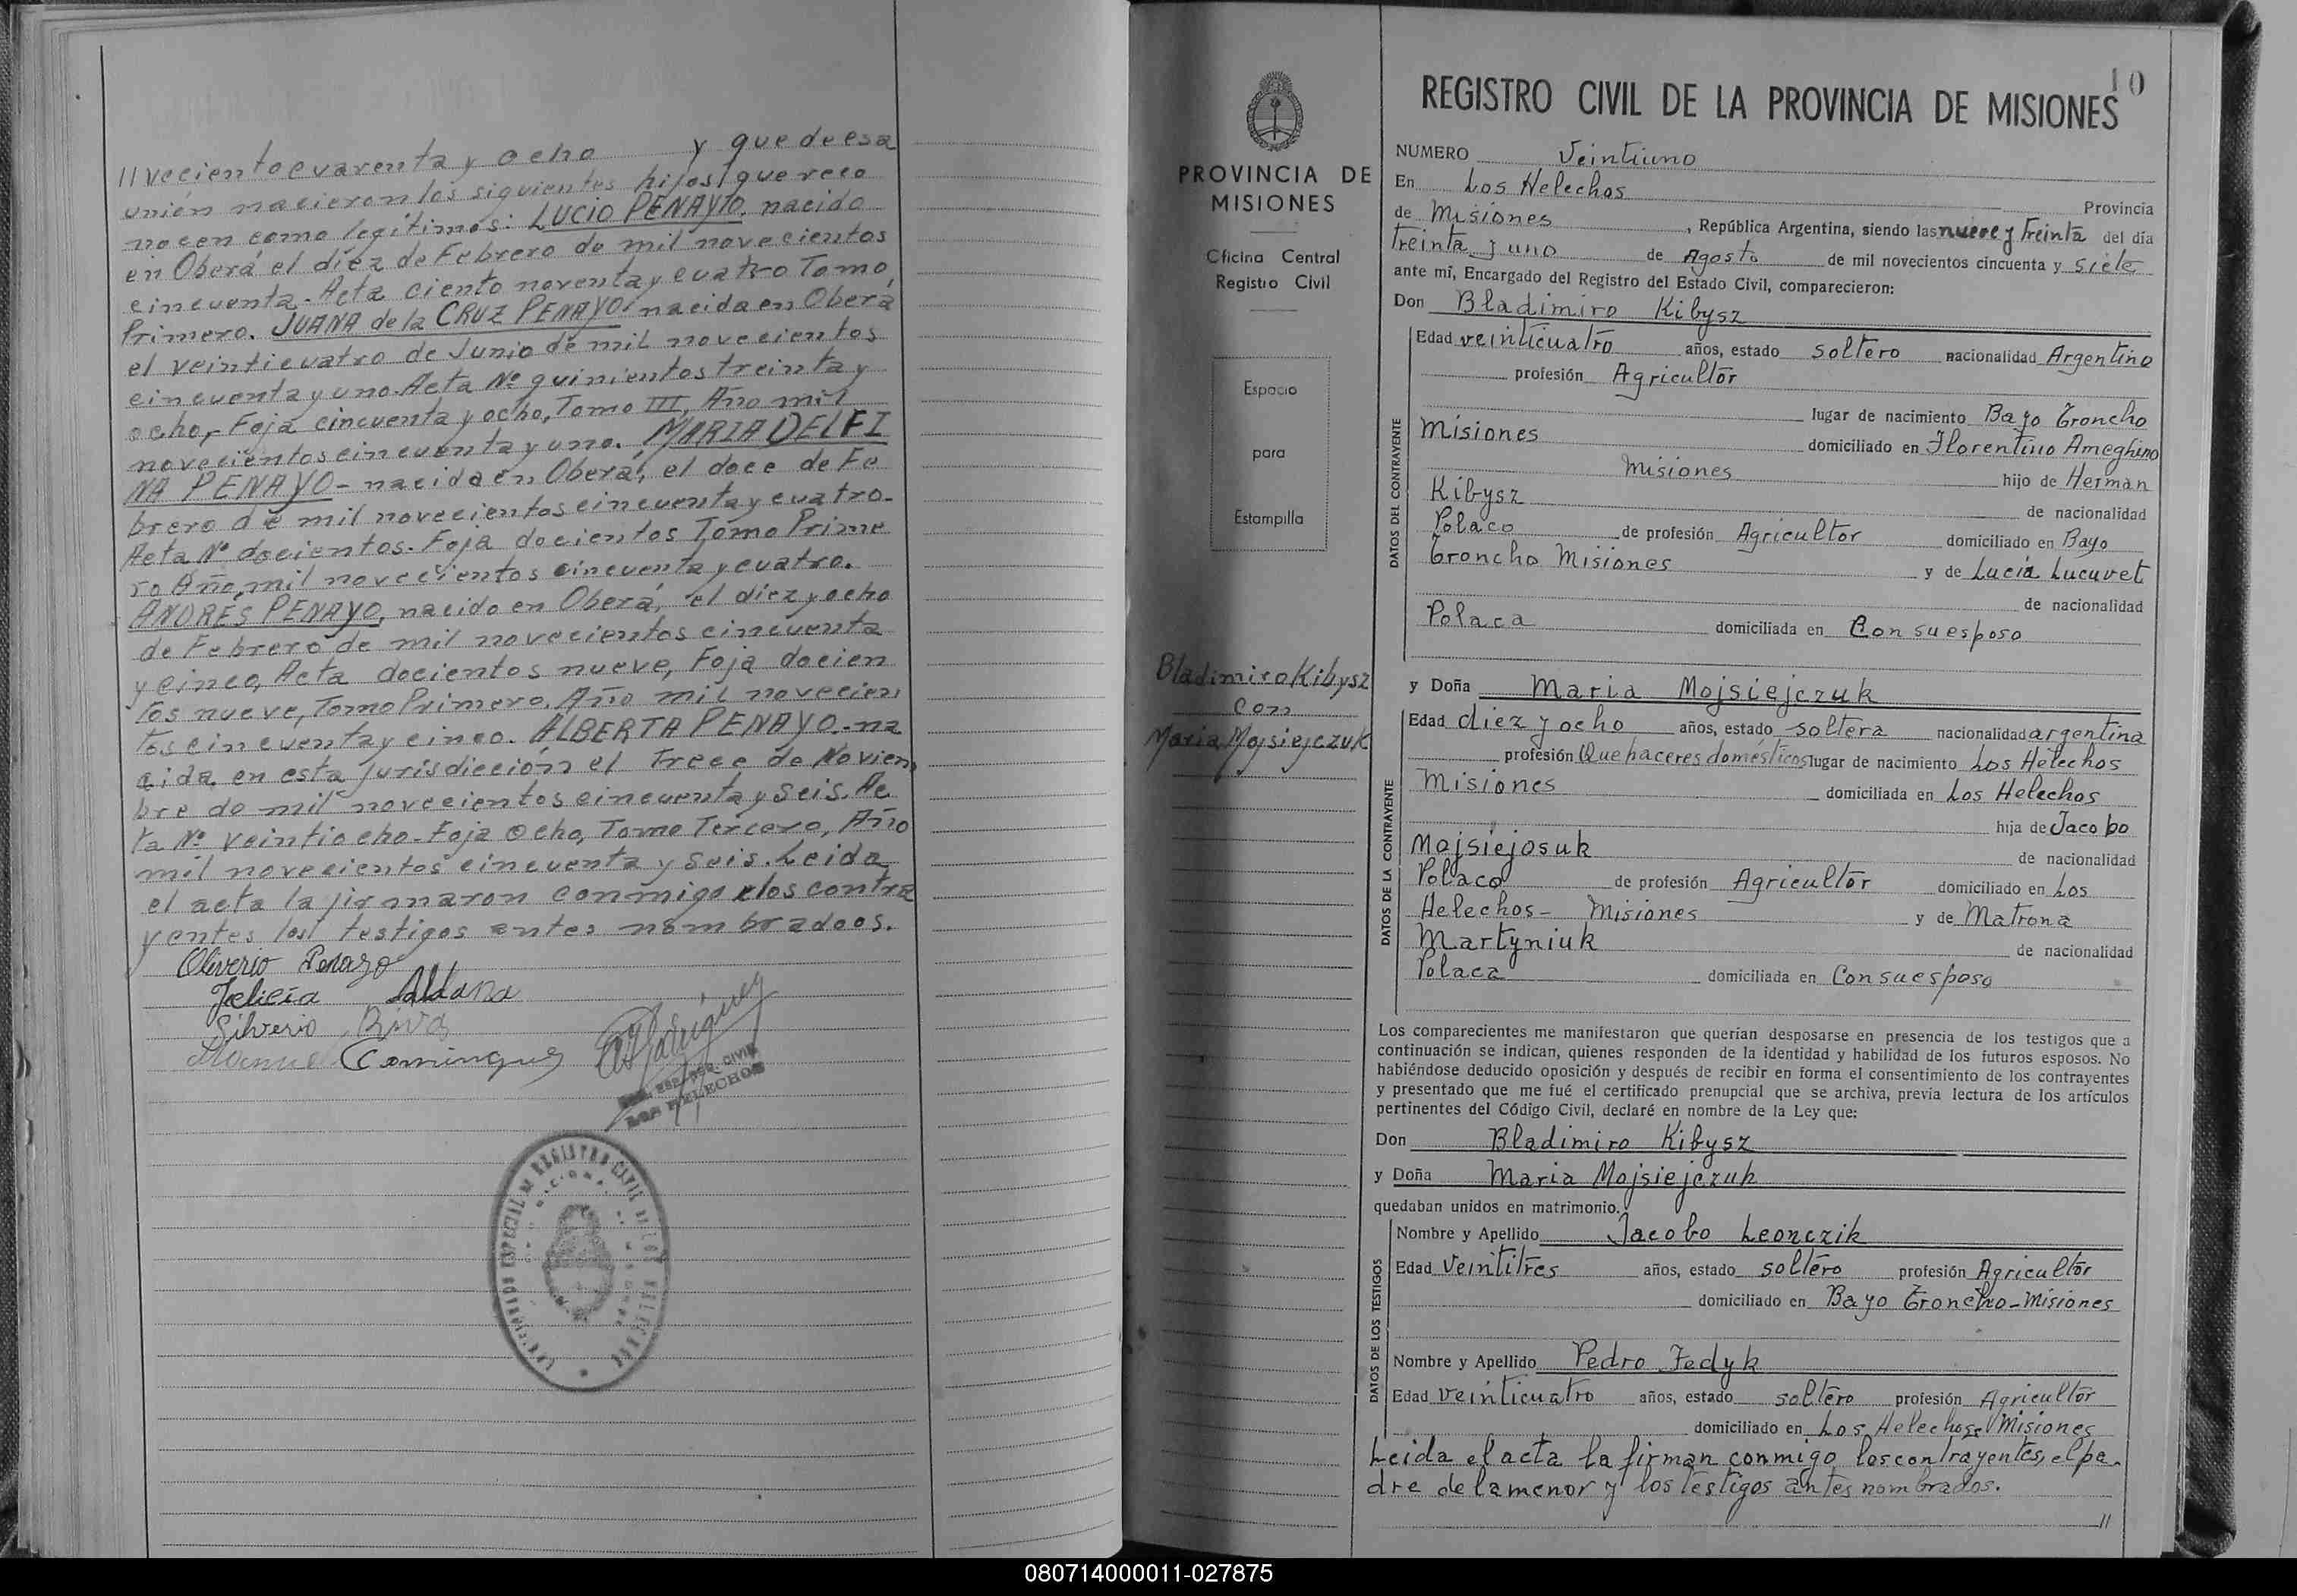 //vecientocuarenta y ocho y que de esa
unión nacieron los siguientes hijos que reco
nocen como legítimos: LUCIO PENAYO, nacido
en Oberá el diez de Febrero de mil novecientos
cincuenta. Acta ciento noventa y cuatro Tomo
Primero. JUANA de la CRUZ PENAYO nacida en Oberá
el veinticuatro de Junio de mil novecientos
cincuenta y uno. Acta Nº quinientos treinta y
ocho, Foja cincuenta y ocho, Tomo III, Año mil
novecientos cincuenta y uno. MARIA DELFI
NA PENAYO - nacida en Oberá, el doce de Fe
brero de mil novecientos cincuenta y cuatro.
Acta Nº docientos. Foja docientos Tomo Prime
ro Año mil novecientos cincuenta y cuatro.
ANDRÉS PENAYO, nacido en Oberá, el diez y ocho
de Febrero de mil novecientos cincuenta
y cinco, Acta docientos nueve, Foja docien
tos nueve, Tomo Primero, Año mil novecien
tos cincuenta y cinco. ALBERTA PENAYO - na
cida en esta jurisdicción el trece de Noviem
bre de mil novecientos cincuenta y seis. Ac
ta Nº veintiocho - Foja ocho, Tomo Tercero, Año
mil novecientos cincuenta y seis. Leida
el acta la firmaron conmigo los contra
yentes los testigos antes nombradoos.
Oliverio Penayo
Felicia Aldana
Silverio Riva
Manuel Comingues
REG. CIVIL
LOS HELECHOS
ESPECIAL DE REGISTRO CIVIL
10
REGISTRO CIVIL DE LA PROVINCIA DE MISIONES
PROVINCIA DE
MISIONES
Oficina Central
Registro Civil
Espacio
para
Estampilla
Bladimiro Kibysz
con
Maria Mojsiejczuk
NUMERO Veintiuno
En Los Helechos Provincia
de Misiones, República Argentina, siendo las nueve y treinta del día
treinta y uno de Agosto de mil novecientos cincuenta y siete
ante mí, Encargado del Registro del Estado Civil, comparecieron:
Don Bladimiro Kibysz
DATOS DEL CONTRAYENTE
Edad veinticuatro años, estado soltero nacionalidad Argentino
profesión Agricultor
lugar de nacimiento Bayo Troncho
Misiones domiciliado en Florentino Ameghino
Misiones hijo de Herman
Kibysz de nacionalidad
Polaco de profesión Agricultor domiciliado en Bayo
Troncho Misiones y de Lucía Lucuvet
de nacionalidad
Polaca domiciliada en Con su esposo
y Doña Maria Mojsiejczuk
DATOS DE LA CONTRAYENTE
Edad diez y ocho años, estado soltera nacionalidad argentina
profesión Que haceres domésticos lugar de nacimiento Los Helechos
Misiones domiciliada en Los Helechos
hija de Jacobo
Mojsiejosuk de nacionalidad
Polaco de profesión Agricultor domiciliado en Los
Helechos - Misiones y de Matrona
Martyniuk de nacionalidad
Polaca domiciliada en Con su esposo
Los comparecientes me manifestaron que querían desposarse en presencia de los testigos que a
continuación se indican, quienes responden de la identidad y habilidad de los futuros esposos. No
habiéndose deducido oposición y después de recibir en forma el consentimiento de los contrayentes
y presentado que me fué el certificado prenupcial que se archiva, previa lectura de los artículos
pertinentes del Código Civil, declaré en nombre de la Ley que:
Don Bladimiro Kibysz
y Doña Maria Mojsiejczuk
quedaban unidos en matrimonio.
DATOS DE LOS TESTIGOS
Nombre y Apellido Jacobo Leonczik
Edad Veintitres años, estado soltero profesión Agricultor
domiciliado en Bayo Troncho - Misiones
Nombre y Apellido Pedro Fedyk
Edad veinticuatro años, estado soltero profesión Agricultor
domiciliado en Los Helechos Misiones
Leida el acta la firman conmigo los contrayentes, el pa-
dre de la menor y los testigos antes nombrados.
//
080714000011-027875